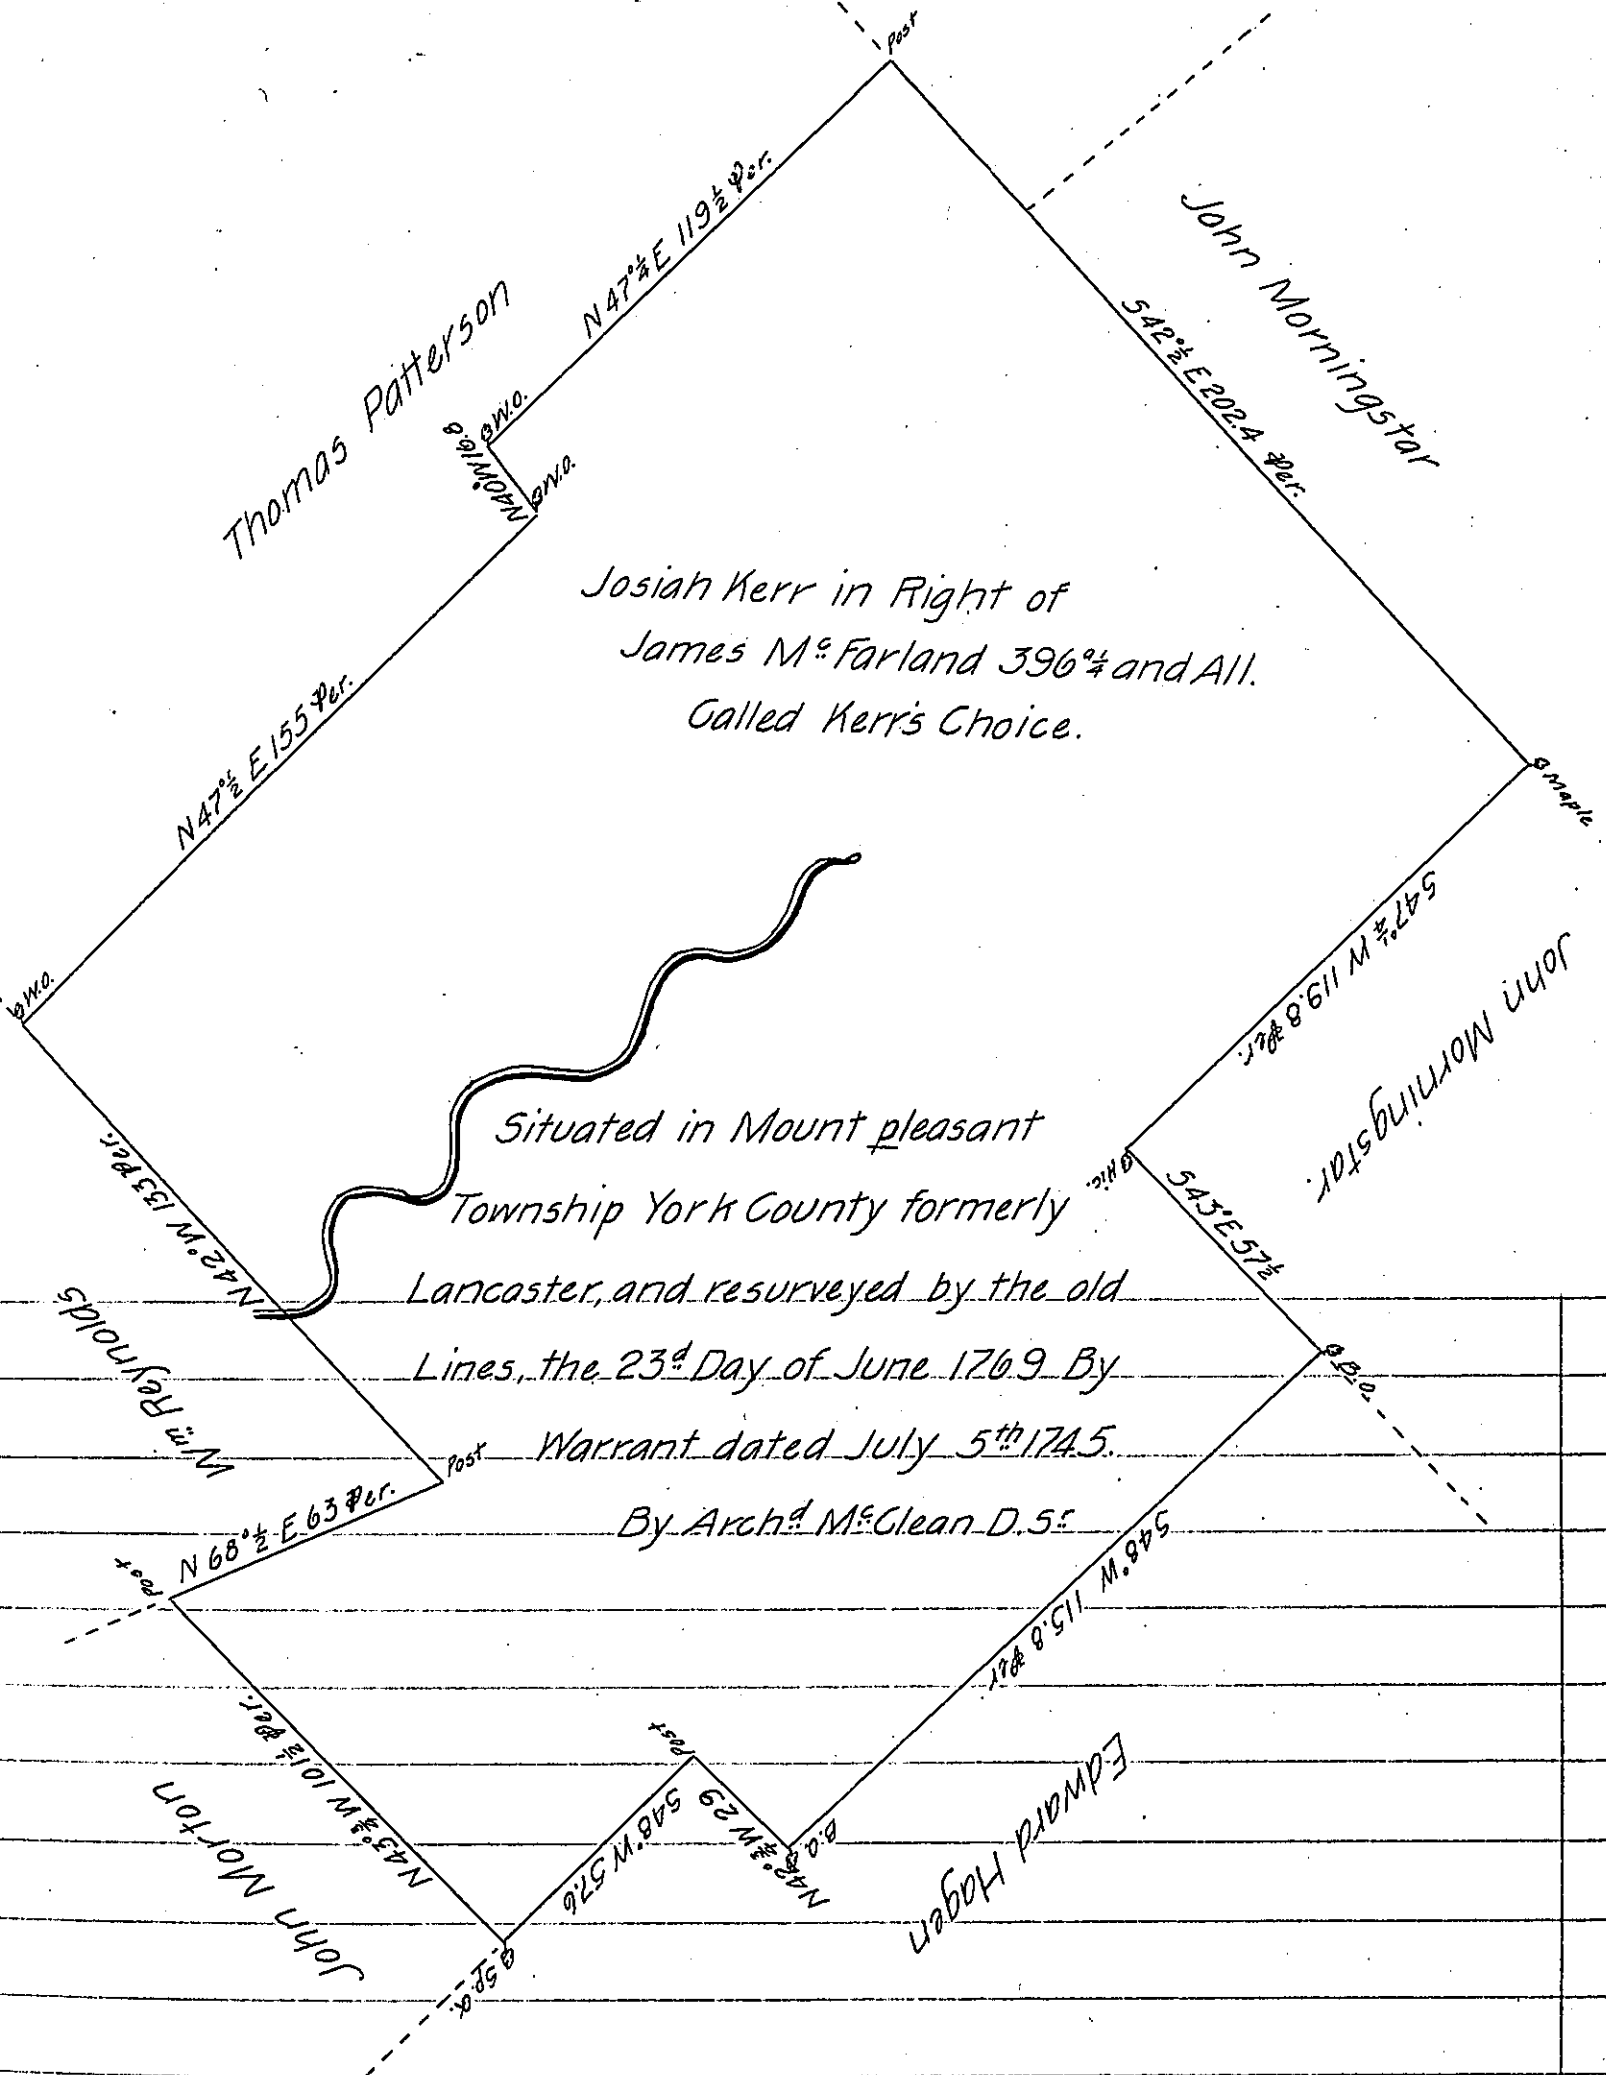 Post
N 47°¼ E 119½ Per.
John Morningstar
S 42°½ E 202.4 Per.
Thomas Patterson
W.O.
N 40° W 16.8
W.O.
Josiah Kerr in Right of
James Mc Farland 396ᵃ¼ and All.
Called Kerr's Choice.
N 47°½ E 155 Per.
Maple
S 47°¼ W 119.8 Per.
John Morningstar.
W.O.
N 42° W 133 Per.
Hic.
S 43° E 57½
Situated in Mount pleasant
Township York County formerly
Lancaster, and resurveyed by the old
Lines, the 23d Day of June 1769 By
Warrant dated July 5th 1745.
By Archd McClean D.Sr
Wm Reynolds
Post
B.O.
N 68°½ E 63 Per.
Post
S 48° W 115.8 Per.
Edward Hagen
N 43°¾ W 101½ Per.
John Morton
Post
S 48° W 57.6
N 42°¾ W 29
B.O.
Sp.O.